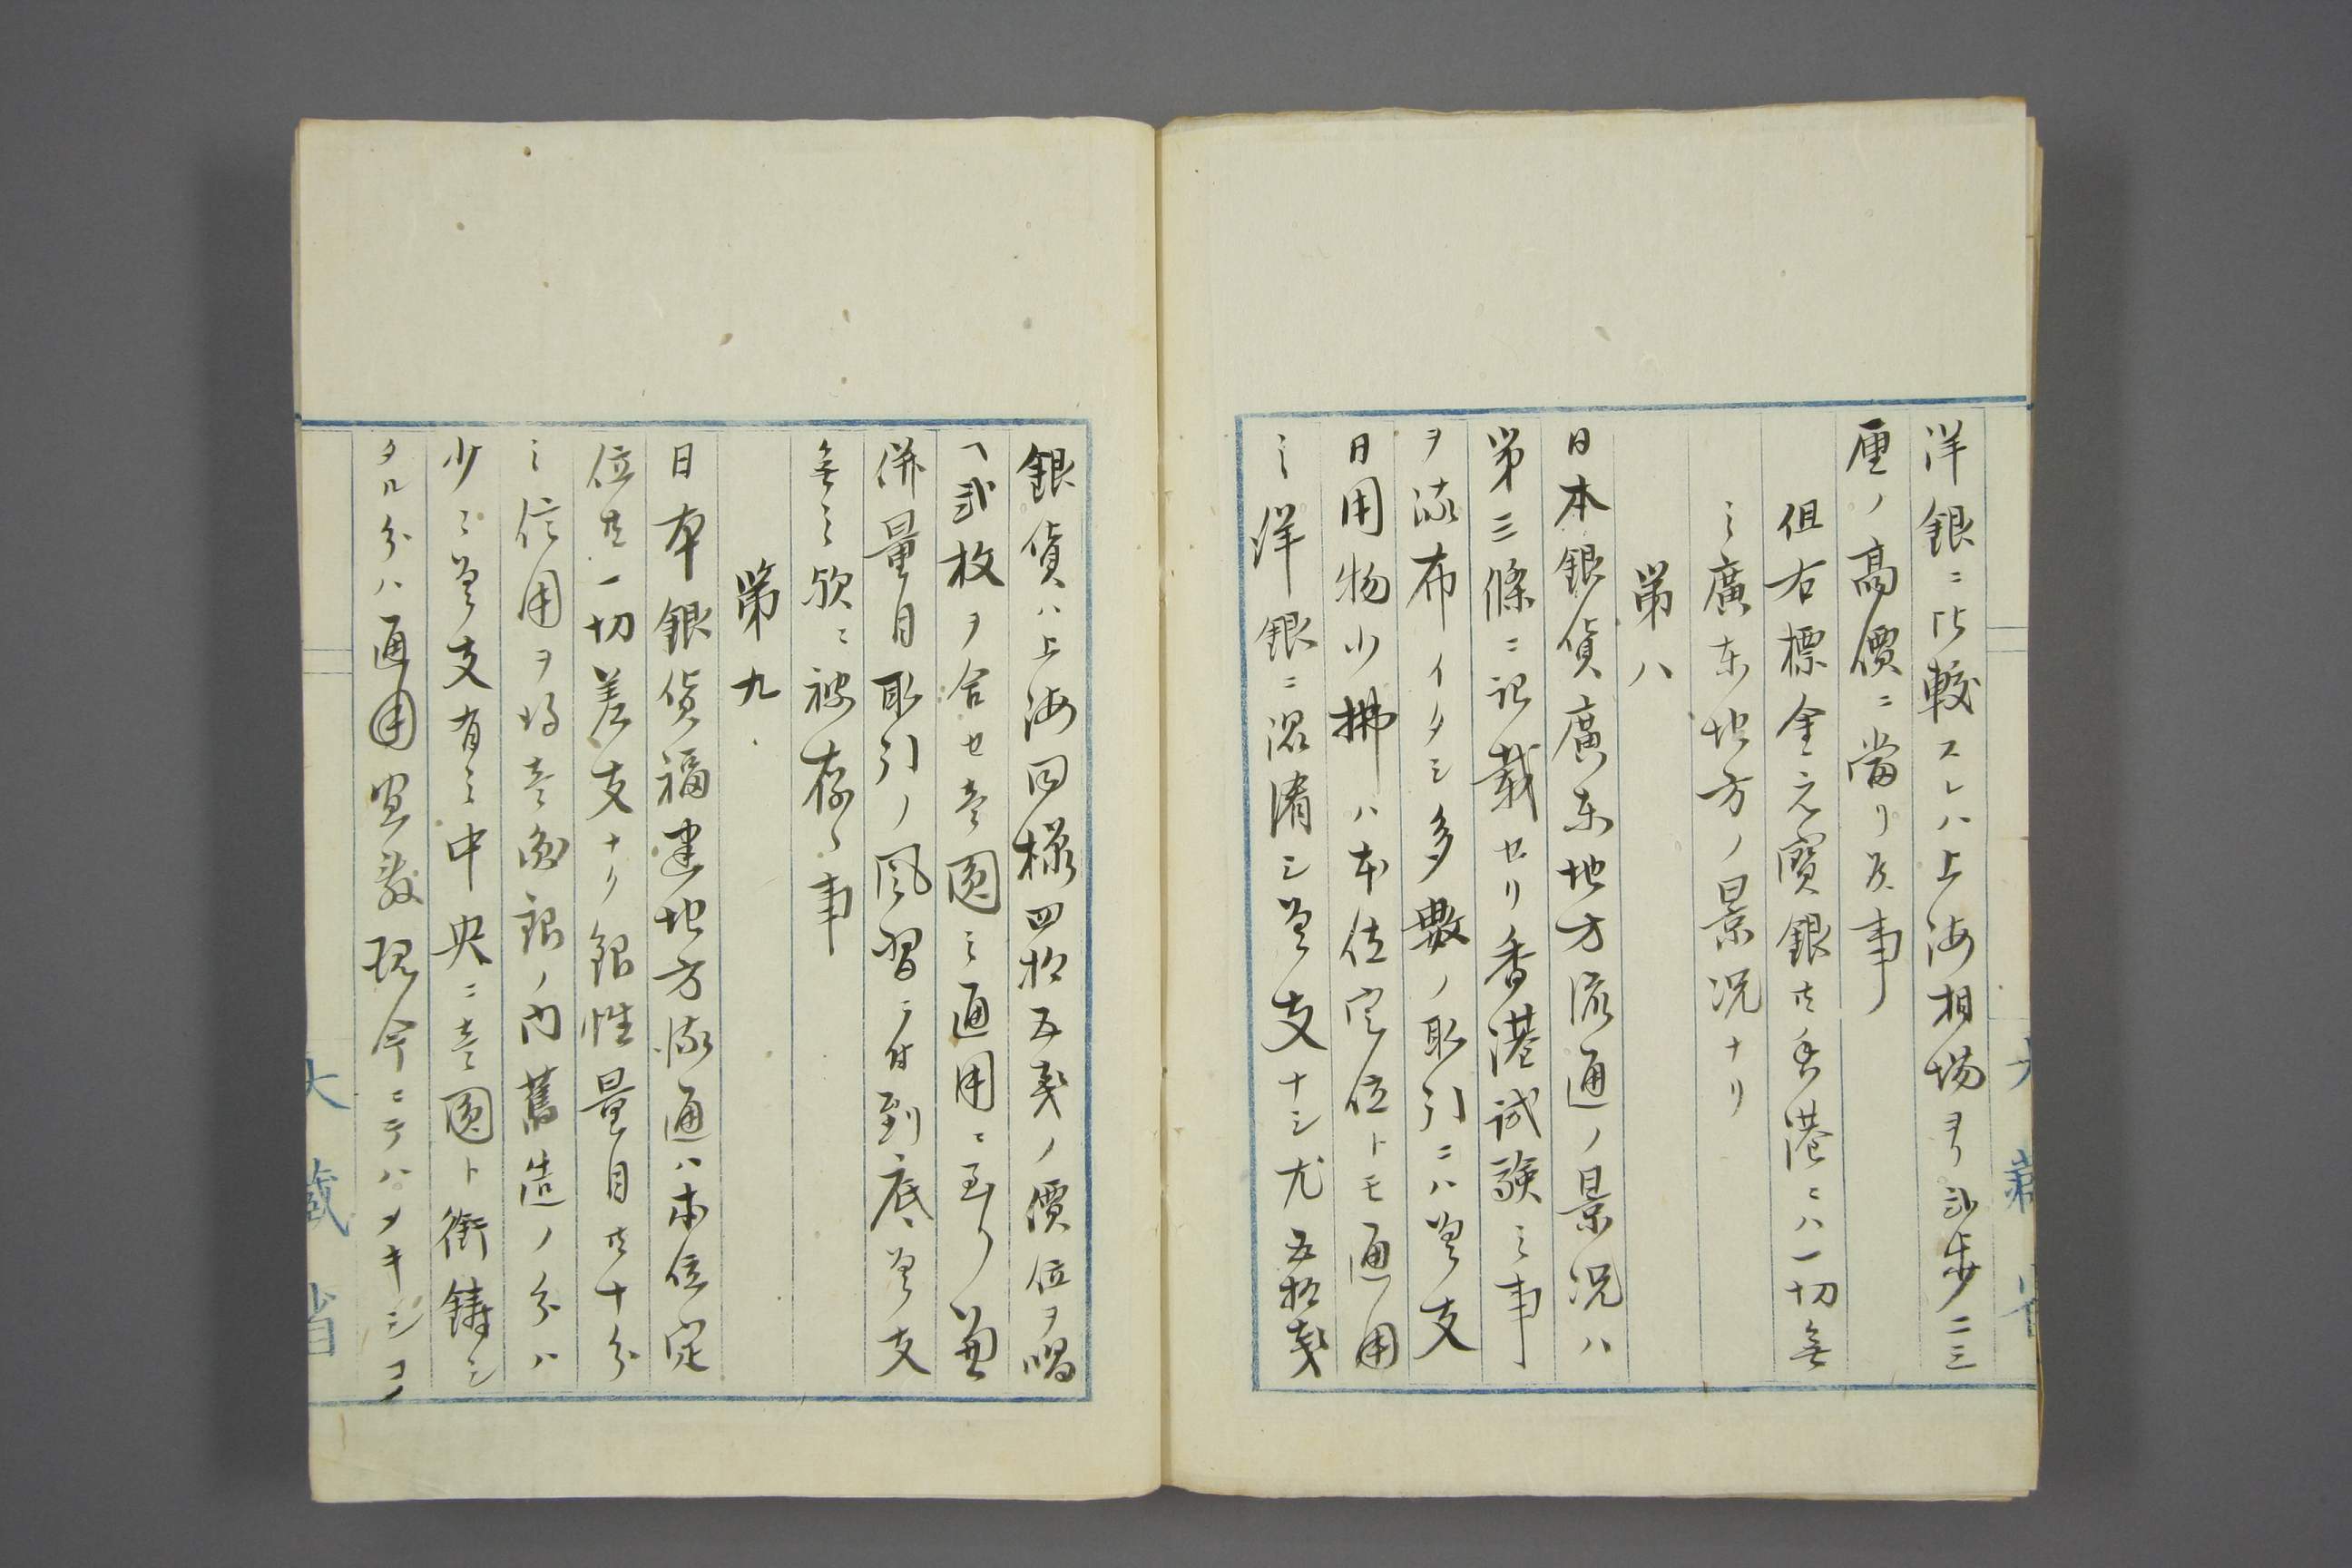 洋銀ニ比較スレハ上海相場ヨリ弐歩二三
厘ノ高價ニ當リ候事
但右標金元寶銀共香港ニハ一切無
之廣東地方ノ景況ナリ
第八
日本銀貨廣東地方流通ノ景況ハ
第三條ニ記載セリ香港試験之事
ヲ流布イタシ多數ノ取引ニハ差支
日用物小拂ハ本位定位トモ通用
之洋銀ニ混淆シ差支ナシ尤五拾銭
大藏省
銀貨ハ上海同様四拾五銭ノ價位ヲ唱
ヘ弐枚ヲ合セ壱圓之通用ニ至リ兼
併量目取引ノ風習ニ付到底差支
無之歟ニ被存候事
第九
日本銀貨福建地方流通ハ本位定
位共一切差支ナク銀性量目共十分
之信用ヲ得壱圓銀ノ内舊造ノ分ハ
少々差支有之中央ニ壱圓ト衝鋳シ
タル分ハ通用宜敷現今ニテハ
大藏省